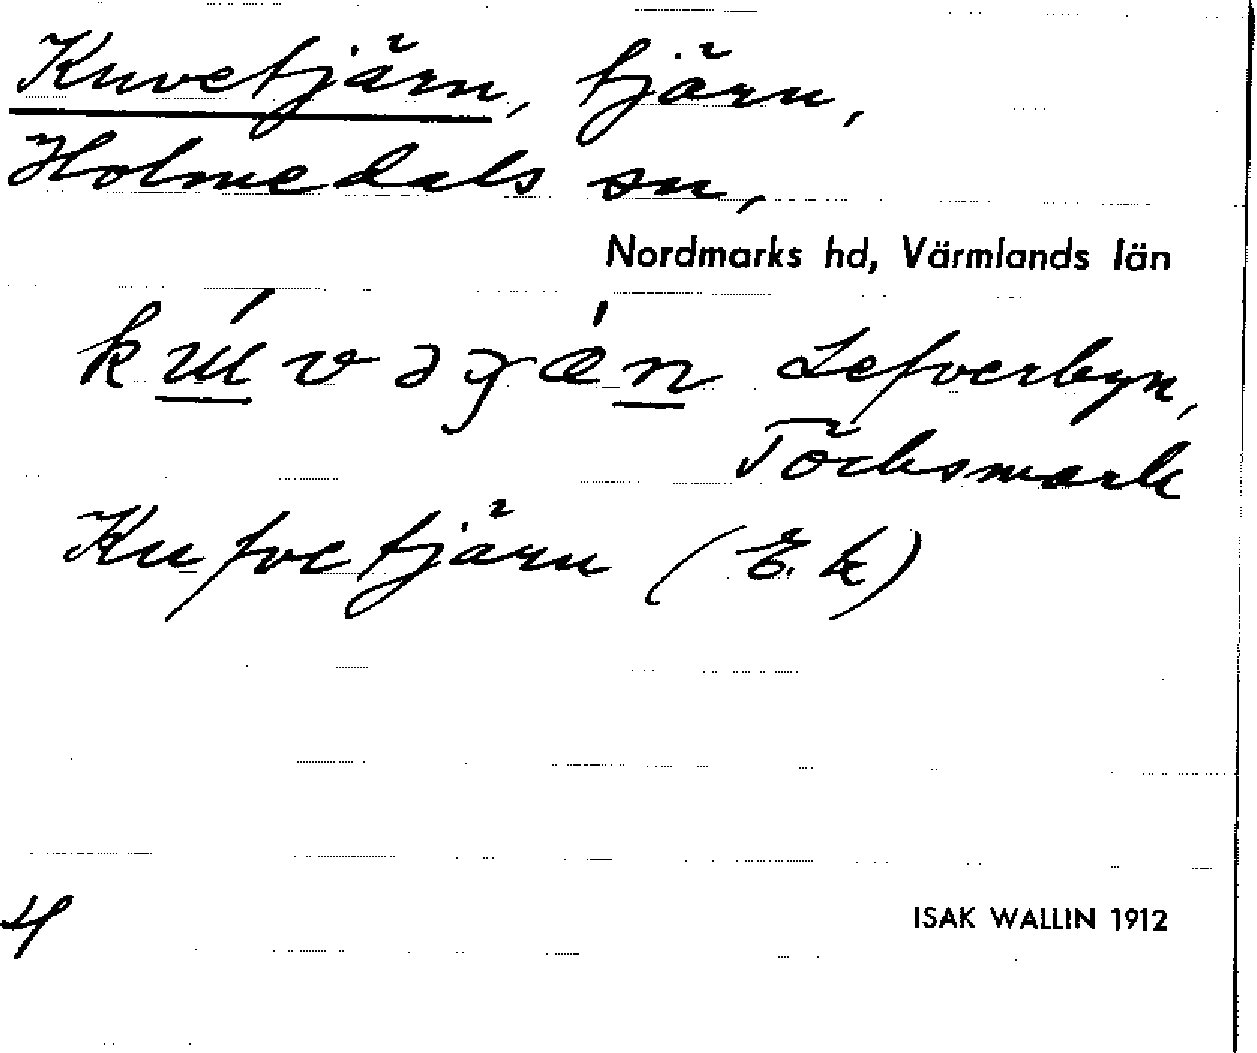 Kuvetjärn, tjärn,
Holmedals sn,
Nordmarks hd, Värmlands län
Lefverbyn,
Töcksmark
Kufvetjärn (E. k)
4
ISAK WALLIN 1912